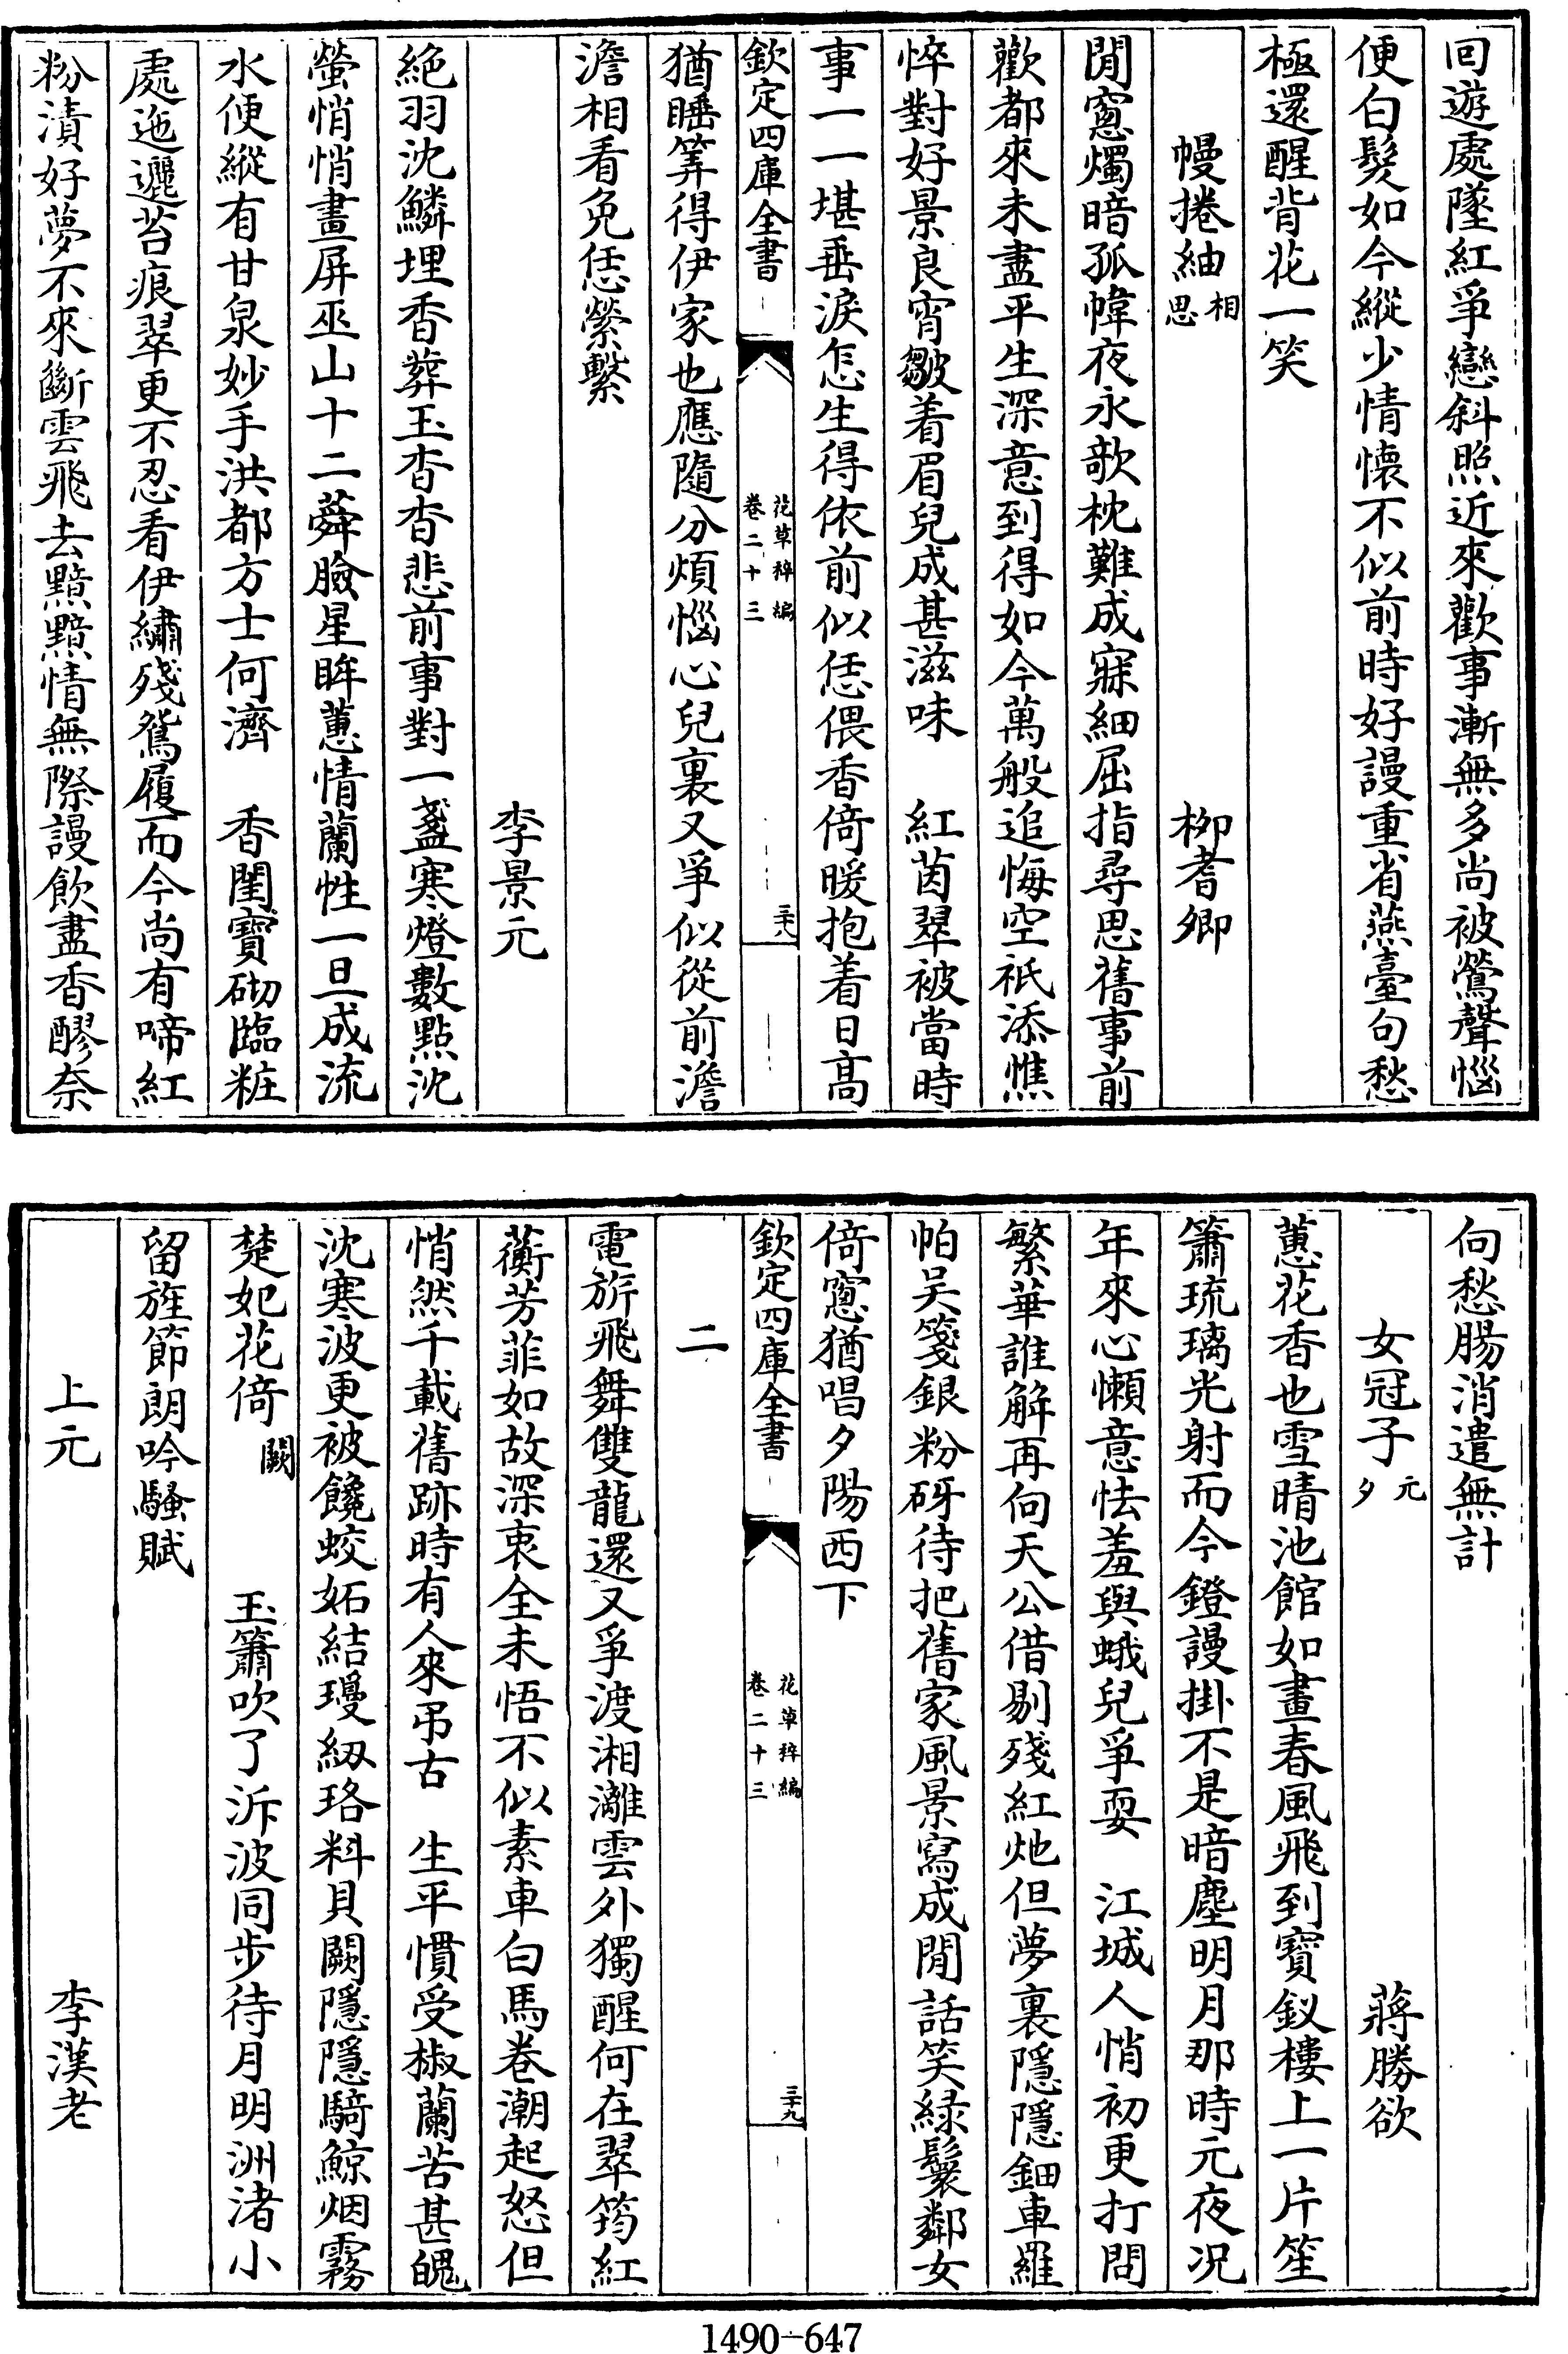 回遊處墜紅爭戀斜照近來歡事漸無多尚被鶯聲惱
便白髮如今縱少情懷不似前時好謾重省燕臺句愁
極還醒背花一笑
幔捲紬相思　柳耆卿
閒窻燭暗孤幃夜永欹枕難成寐細屈指尋思舊事前
歡都來未盡平生深意到得如今萬般追悔空祇添憔
悴對好景良宵皺着眉兒成甚滋味　紅茵翠被當時
事一一堪垂淚怎生得依前似恁偎香倚暖抱着日高
欽定四庫全書　花草稡編卷二十三　三十八
猶睡筭得伊家也應隨分煩惱心兒裏又爭似從前澹
澹相看免恁縈繫
李景元
絶羽沈鱗埋香葬玉杳杳悲前事對一盞寒燈數點沈
螢悄悄畫屏巫山十二蕣臉星眸蕙情蘭性一旦成流
水便縱有甘泉妙手洪都方士何濟　香閨寶砌臨粧
處迤邐苔痕翠更不忍看伊繡殘鴛履而今尚有啼紅
粉漬好夢不來斷雲飛去黯黯情無際謾飲盡香醪奈
向愁腸消遣無計
女冠子元夕　蔣勝欲
蕙花香也雪晴池館如畫春風飛到寶釵樓上一片笙
簫琉璃光射而今鐙謾掛不是暗塵明月那時元夜况
年來心懶意怯羞與蛾兒爭耍　江城人悄初更打問
繁華誰解再向天公借剔殘紅灺但夢裏隱隱鈿車羅
帕吴箋銀粉砑待把舊家風景寫成閒話笑緑鬟鄰女
倚窻猶唱夕陽西下
欽定四庫全書　花草稡編卷二十三　三十九
二
電旂飛舞雙龍還又爭渡湘灕雲外獨醒何在翠筠紅
蘅芳菲如故深衷全未悟不似素車白馬卷潮起怒但
悄然千載舊跡時有人來弔古　生平慣受椒蘭苦甚魄
沈寒波更被饞蛟妬結瓊紉珞料貝闕隱隱騎鯨烟霧
楚妃花倚闕　玉簫吹了泝波同步待月明洲渚小
留旌節朗吟騷賦
上元　李漢老
1490-647